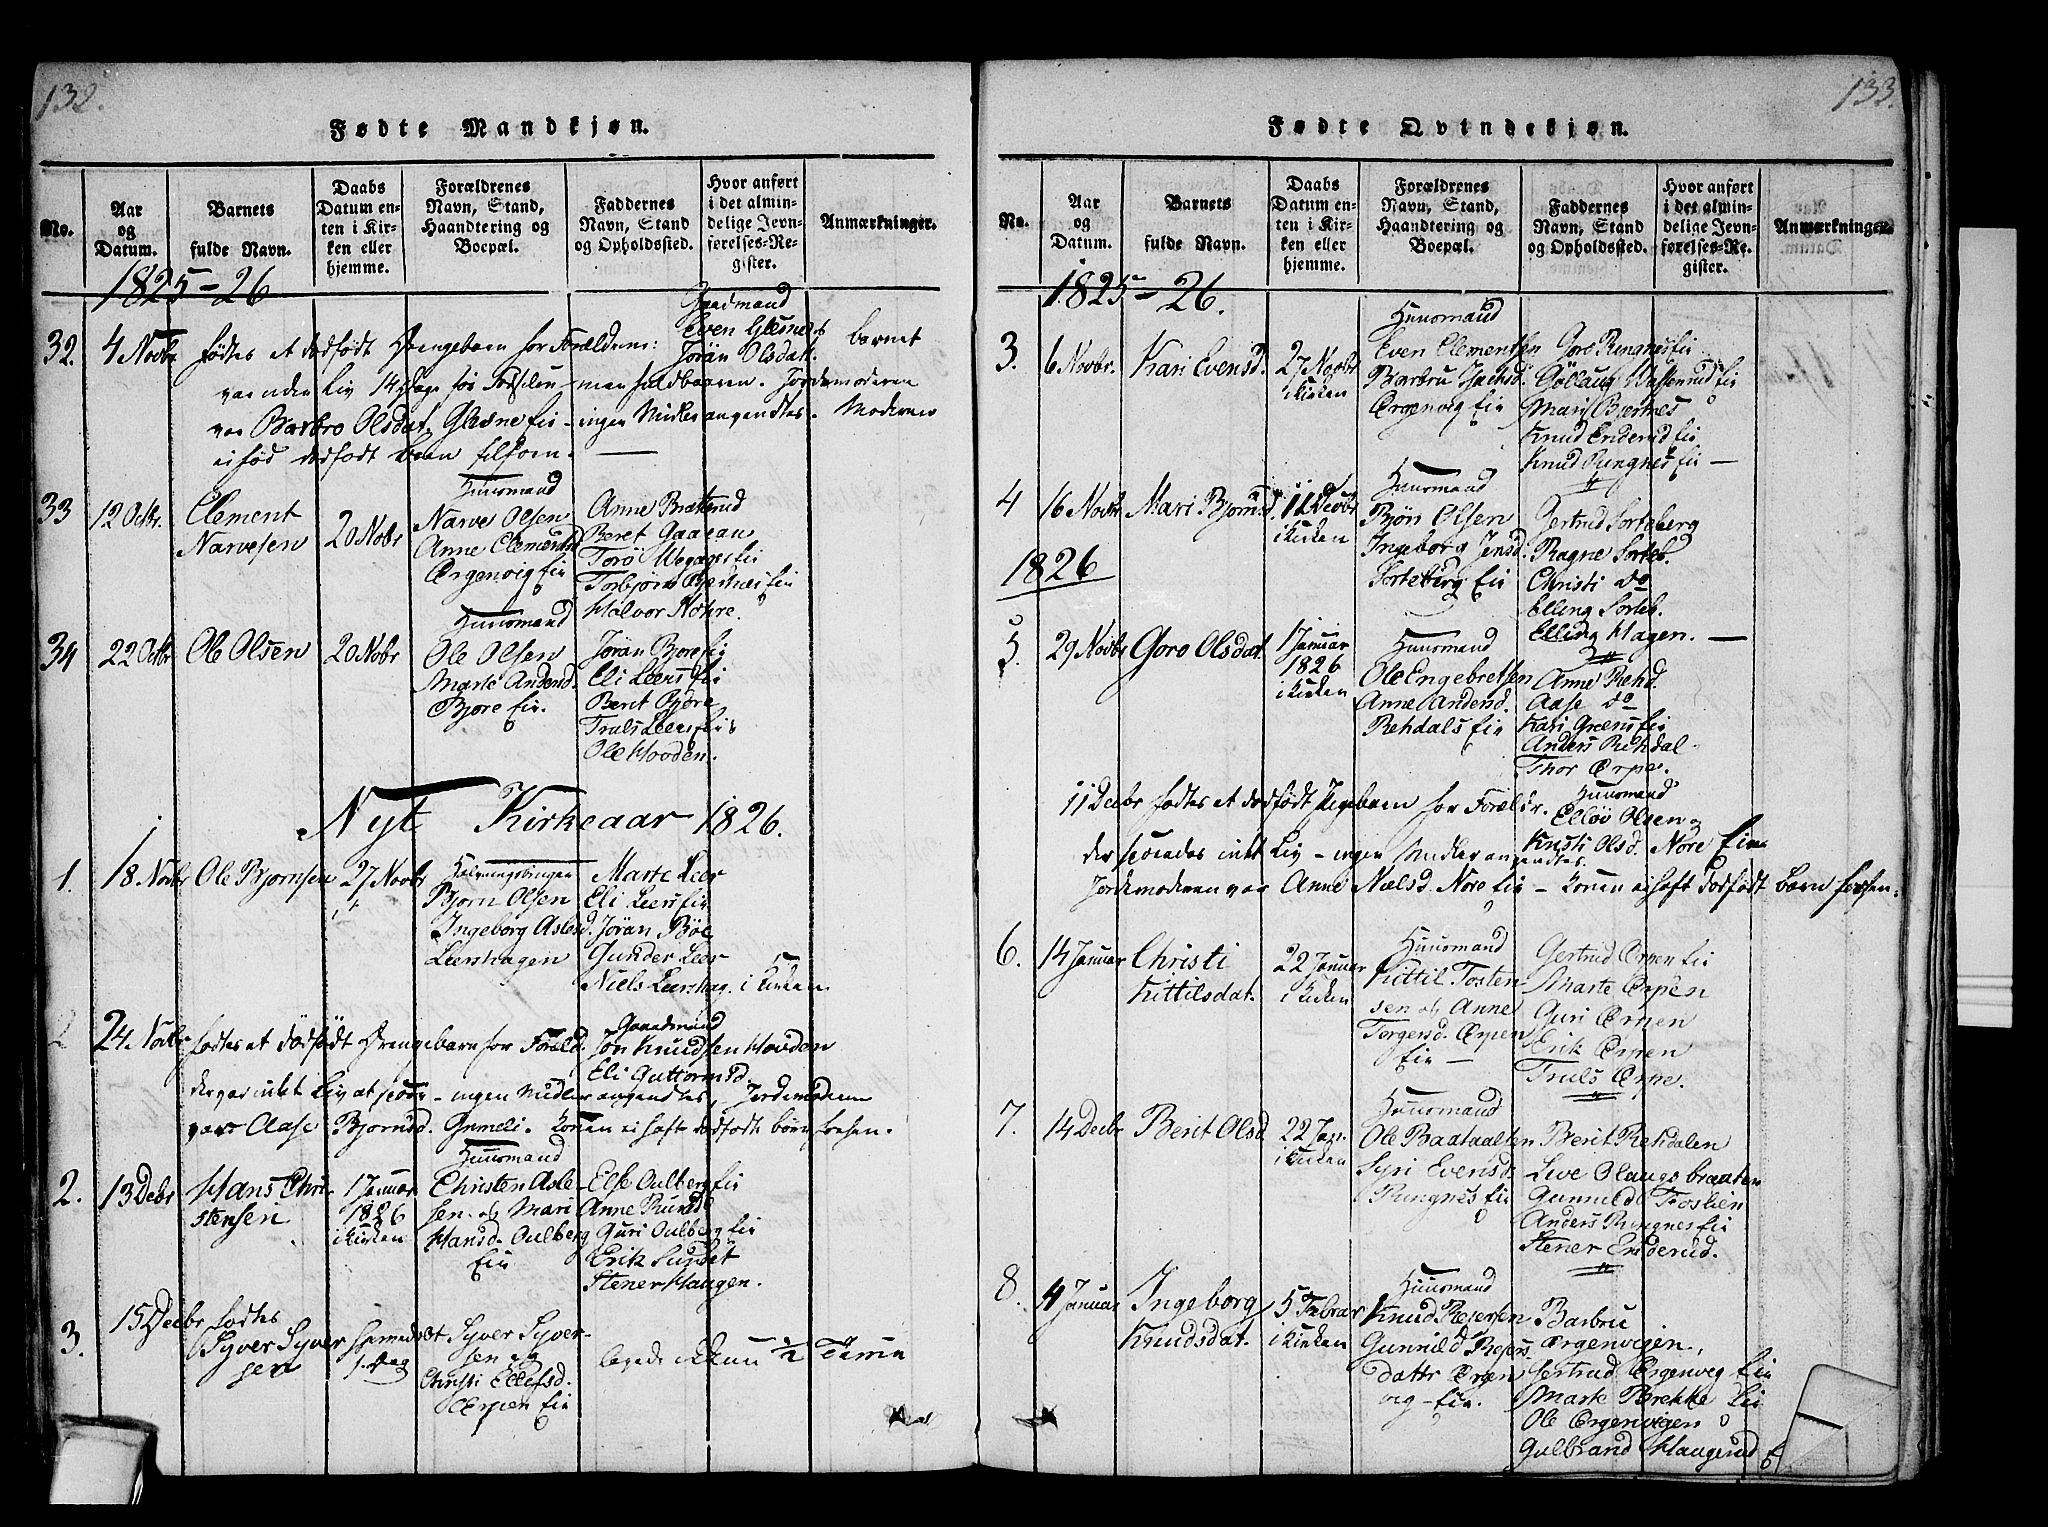 132.
Fødte Mandkjøn.
No.
Aar
og
Datum.
Barnets
fulde Navn.
Daabs
Datum en-
ten i Kir-
ken eller
hjemme.
Forældrenes
Navn, Stand,
Haandtering og
Boepæl.
Faddernes
Navn, Stand
og Opholdssted.
Hvor anført
i det almin-
delige Jevn-
førelses-Re-
gister.
Anmærkninger.
1825-26
32. 4 Novbr fødtes et dødfødt Drengebarn for Forældrene: Gaardmand
Even Glesne
Jöran Olsdat.
var uden Liv 14 dage før - Jordemoderen
var Barbro Olsdat. Glesne Eie - ingen Midler anvendtes.
33
12 Octbr.
Clement
Narvesen
20 Novbr
Huusmand
Narve Olsen
Anne Clemensd
Ørgenvig Eie
Anne Bratterud
Beret Gaaraan
Torö
Torbjörn
Halvor Nohre.
34
22 Octbr
Ole Olsen
20 Novbr
Huusmand
Ole Olsen
Marte Andersd.
Bjore Eie.
Jöran Bjore Eie
Eli Leers Eie
Berit Björe
Truls Leers Eie
Ole Hovden.
Nyt Kirkeaar 1826.
1.
18 Novbr
Ole Bjornsen
27 Novbr
Bjorn Olsen
Ingeborg Aslesd.
Leershagen
Marte Leer
Eli Leers Eie
Jöran Böe
Gunder Leer
Niels Leershag. i Kirken.
2
24. Novbr fødtes et dödfödt Drengebarn for Foræld. Gaardmand
Jon Knudsen Hovden
Eli Guttormsd.
der var intet Liv at spore - ingen Midler anvendtes, Jordemoderen
var Aase Bjornsd. Gumeli. Konen ei haft dødfødte børn forhen.
2.
13 Decbr
Hans Chri-
stensen
1 Januar
1826
i Kirken
Huusmand
Christen Asle-
sen og Mari
Hansd. Oulberg
Eie
Else Oulberg Eie
Anne Rund
Guri Oulberg Eie
Erik Sundet
Stener Haugen.
3.
15 Decbr fødtes
Syver Syver
sen
hjemedøbt
Syver Syver-
sen og
Christi Ellefsd.
Ørpen Eie
levede ikkun 1/2 Time
133.
Fødte Qvindekjøn.
No.
Aar
og
Datum.
Barnets
fulde Navn.
Daabs
Datum en-
ten i Kir-
ken eller
hjemme.
Forældrenes
Navn, Stand,
Haandtering og
Boepæl.
Faddernes
Navn, Stand
og Opholdssted.
Hvor anført
i det almin-
delige Jevn-
førelses-Re-
gister.
Anmærkninger.
1825-26.
3.
6 Novbr.
Kari Evensd.
27 Novbr
i Kirken
Huusmand
Even Clementsen
Barbru
Ørgenvig Eie
Goro Rungnes Eie
Göllaug Wassenrud Eie
Mari Bærnes
Knud Enderud Eie
Knud Rungnes Eie
4
16 Novbr
Mari Bjornsd.
11 Decbr
i Kirken
Huusmand
Bjön Olsen
Ingeborg Jensd.
Sorteberg Eie
Gertrud Sorteberg
Ragne Sorteb.
Christi do
Elling Sorteb.
Elling Hagen.
1826
5.
29 Novbr
Goro Olsdat.
1 Januar
1826
i Kirken
Huusmand
Ole Engebretsen
Anne Andersd.
Rehdals Eie
Anne Rehd.
Aase do
Kari Greens Eie
Anders Rehdal
Thor Ørpe.
11 Decbr fødtes et dødfödt Pigebarn for Forældr. Huusmand
Ellöv Olsen og
Kristi Olsd. Nore Eie
der spoeredes intet Liv - ingen Midler anvendtes.
Jordemoderen var Anne Nielsd. Nore Eie - Konen ei haft dødfødt Barn forhen.
6.
14 Januar
Christi
Kittilsdat.
22 Januar
i Kirken
Huusmand
Kittil Tosten
sen og Anne
Torgersd. Ørpen
Eie
Gertrud Ørpen Eie
Marte Ørpen
Guri Ørpen
Erik Ørpen
Truls Ørpe.
7.
14 Decbr
Berit Olsd.
22 Jan.
i Kirken
Huusmand
Ole Baataalten
Syri Evensd.
Rungnes Eie
Berit Rehdalen
Live Olaugsbraaten
Gunnild Froslien
Anders Rungnes Eie
Stener Enderud.
8.
4 Januar
Ingeborg
Knudsdat.
5 Febrar
i Kirken
Huusmand
Knud Reiersen
Gunnild Reiers
datter Ørgen
vig Eie.
Barbru
Ørgenvigen,
Gertrud Ørgenveg Eie
Marte Brekke Eie
Ole Ørgenvigen
Gulbrand Haugerud